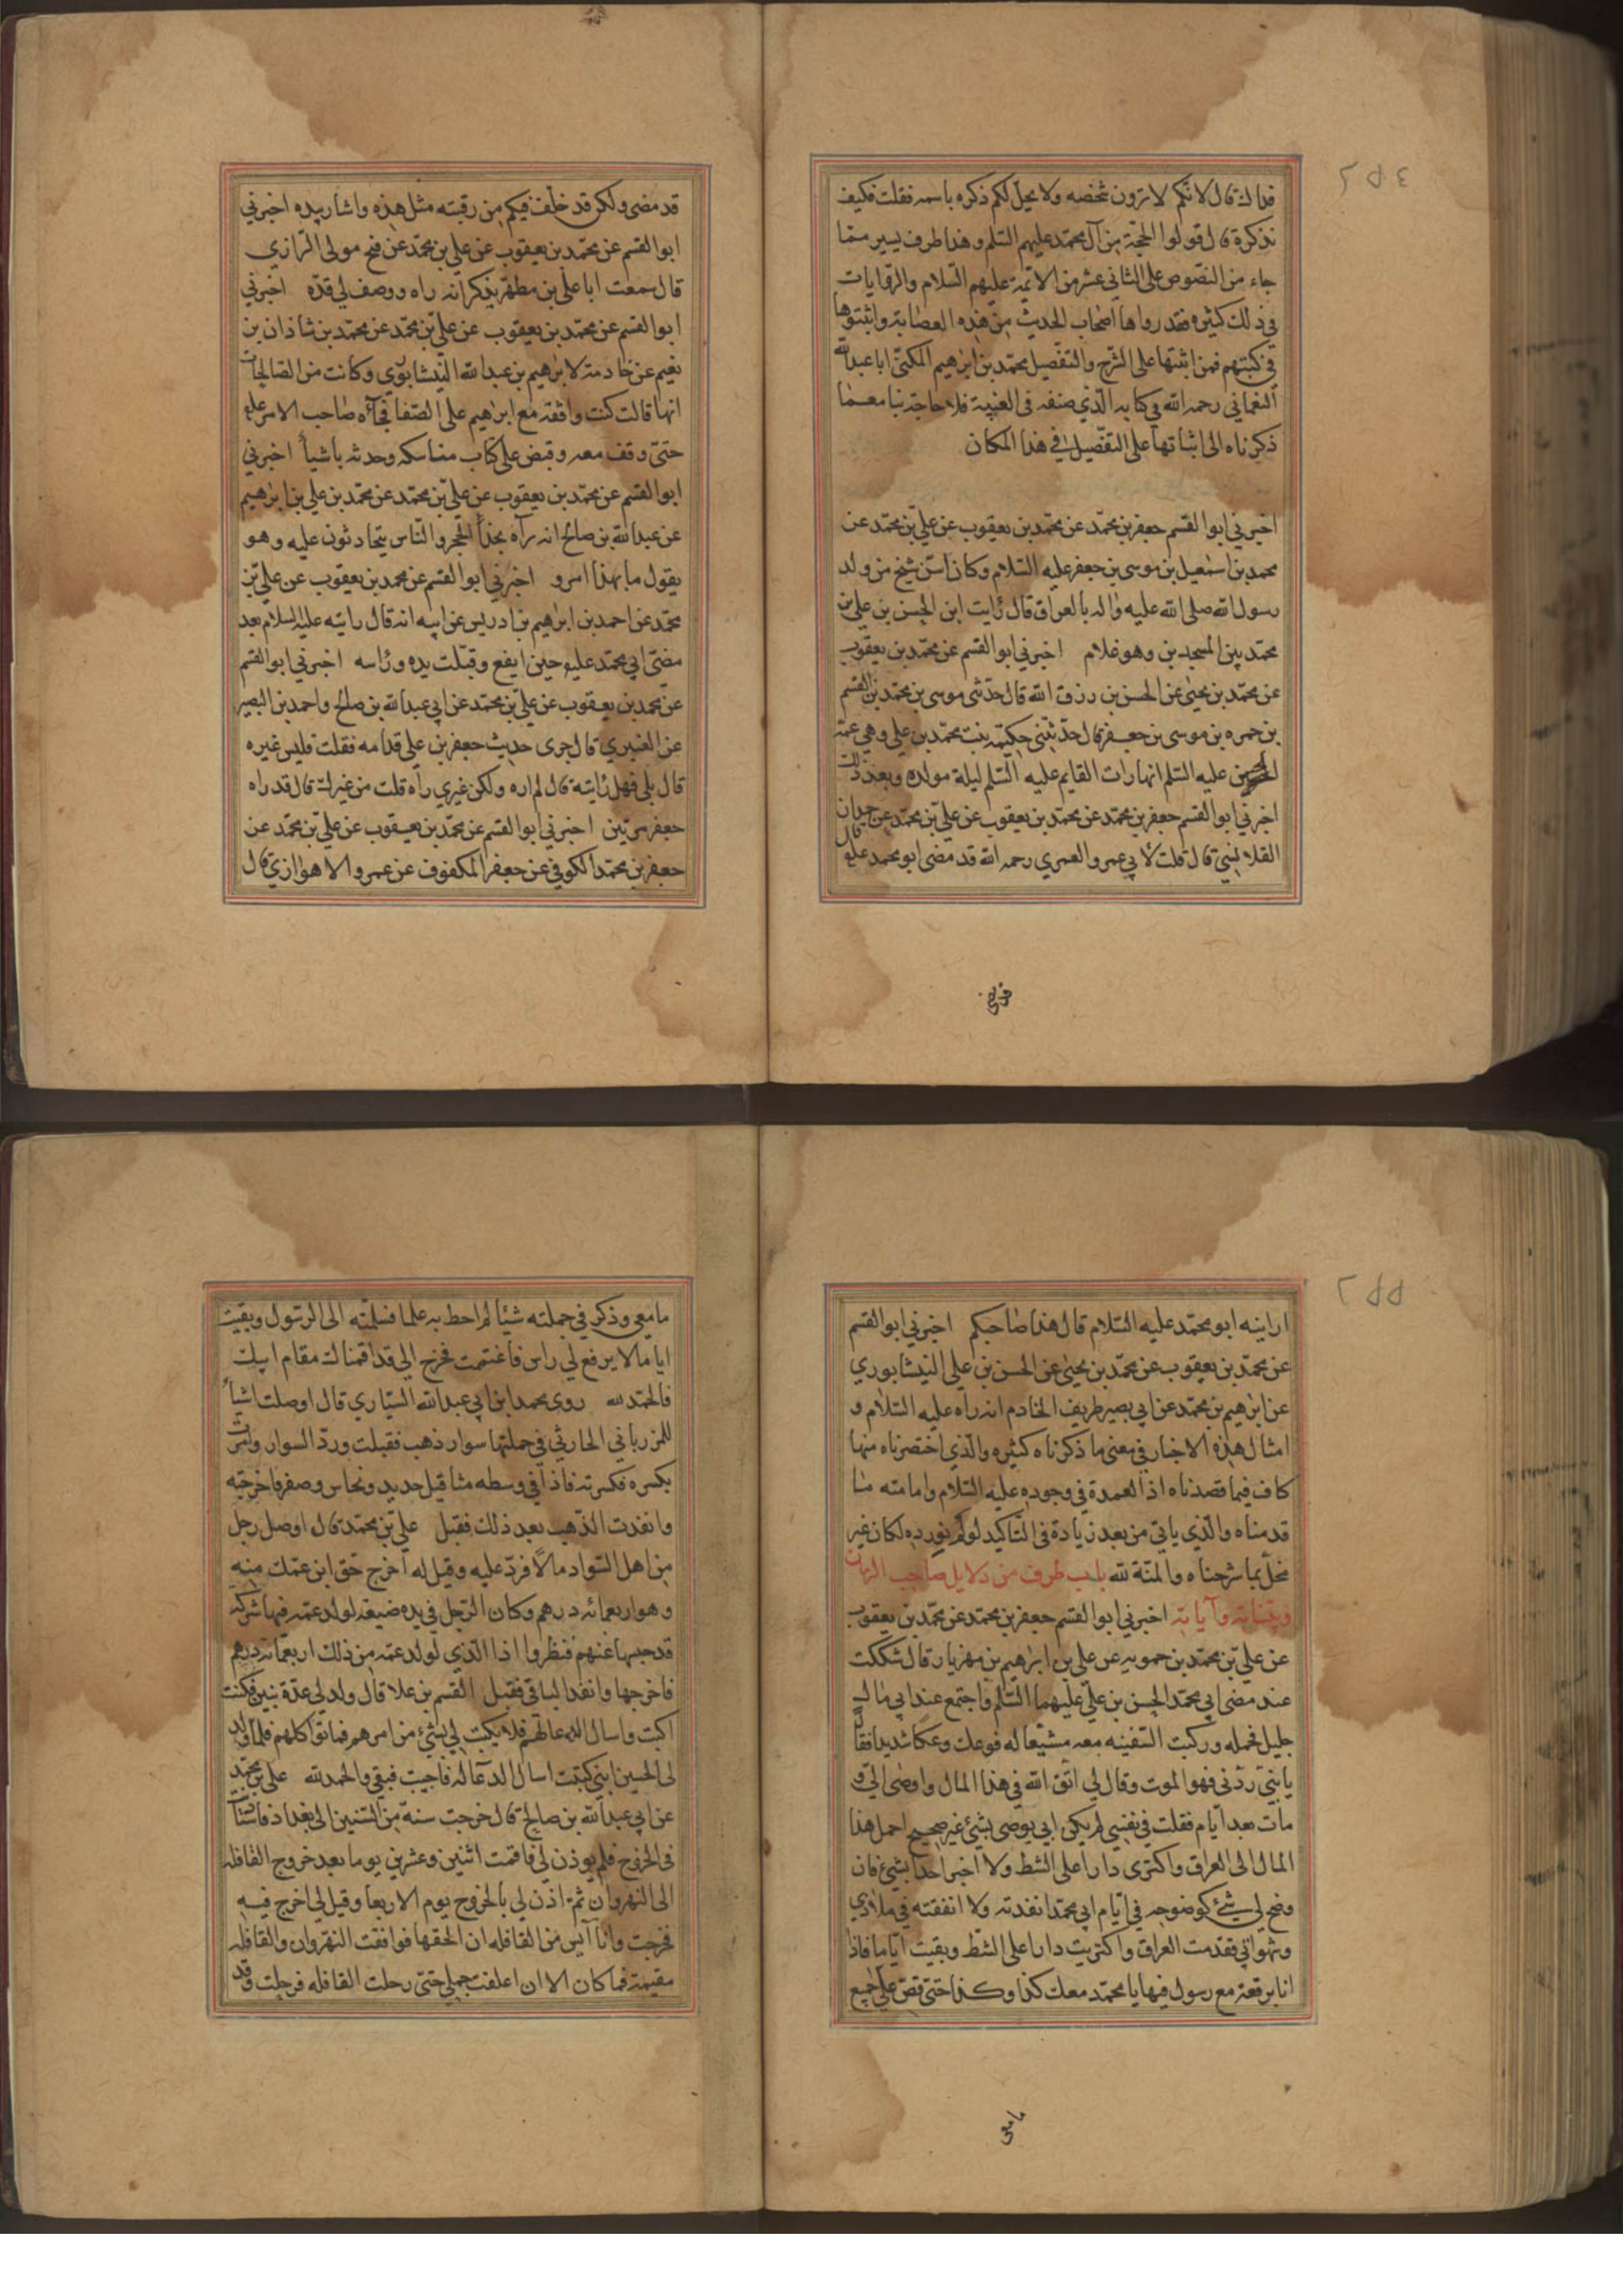 فداك قال لانكم لا ترون شخصه ولا يحل لكم ذكره باسمه فقلت فكيف
نذكره قال قولوا الحجة من آل محمد عليهم السلم وهذا طرف يسير مما
جاء من النصوص على الثاني عشر من الائمة عليهم السلام والروايات
في ذلك كثيره فقد رواها اصحاب الحديث من هذه العصابة واثبتوها
في كتبهم فمن اثبتها على الشرح والتفصيل محمد بن ابرهيم المكنى ابا عبدالله
النعماني رحمه الله في كتابه الذي صنفه في الغيبة فلا حاجة بنا مع ما
ذكرناه الى اثباتها على التفصيل في هذا المكان
اخبرني ابوا القسم جعفر بن محمد عن محمد بن يعقوب عن علي بن محمد عن
محمد بن اسمعيل بن موسى بن جعفر عليه السلام وكان اسن شيخ من ولد
رسول الله صلى الله عليه واله بالعراق قال رايت ابن الحسن بن علي بن
محمد بين المسجدين وهو غلام اخبرني ابوا القسم عن محمد بن يعقوب
عن محمد بن يحيى عن الحسن بن رزق الله قال حدثني موسى بن محمد بن القسم
بن حمزه بن موسى بن جعفر قال حدثتني حكيمة بنت محمد بن علي وهي عمة
الحسن عليه السلم انها رات القايم عليه السلم ليلة مولده وبعد ذلك
اخبرني ابوا القسم جعفر بن محمد عن محمد بن يعقوب عن علي بن محمد عن حمدان
القلانسي قال قلت لابي عمرو العمري رحمه الله قد مضى ابو محمد عليه قال
قد مضى
قد مضى ولكن قد خلف فيكم من رقبته مثل هذه واشار بيده اخبرني
ابوا القسم عن محمد بن يعقوب عن علي بن محمد عن فتح مولى الرازي
قال سمعت ابا علي بن مطهر يذكر انه راه ووصف لي قده اخبرني
ابوا القسم عن محمد بن يعقوب عن علي بن محمد عن محمد بن شاذان بن
نعيم عن خادمة لابرهيم بن عبدالله النيشابوري وكانت من الصالحات
انها قالت كنت واقفة مع ابرهيم على الصفا فجاءه صاحب الامر عليه
حتى وقف معه وقبض على كتاب مناسكه وحدثه باشيا اخبرني
ابوا القسم عن محمد بن يعقوب عن علي بن محمد عن محمد بن علي بن ابرهيم
عن عبدالله بن صالح انه رآه بحذا الحجر والناس يتجاذبون عليه وهو
يقول ما بهذا امرو اخبرني ابوا القسم عن محمد بن يعقوب عن علي بن
محمد عن احمد بن ابرهيم بن ادريس عن ابيه انه قال رايته عليه السلام بعد
مضى ابي محمد عليه حين ايفع وقبلت يده وراسه اخبرني ابوا القسم
عن محمد بن يعقوب عن علي بن محمد عن ابي عبدالله بن صالح واحمد بن النصير
عن القنبري قال جرى حديث جعفر بن علي فذمه فقلت فليس غيره
قال بلى فهل رايته قال لم اره ولكن غيري رآه قلت من غيرك قال قد راه
جعفر مرتين اخبرني ابوا القسم عن محمد بن يعقوب عن علي بن محمد عن
جعفر بن محمد الكوفي عن جعفر المكفوف عن عمرو الاهوازي قال
ارانيه ابو محمد عليه السلام قال هذا صاحبكم اخبرني ابوا القسم
عن محمد بن يعقوب عن محمد بن يحيى عن الحسن بن علي النيشابوري
عن ابرهيم بن محمد عن ابي بصير طريف الخادم انه راه عليه السلام و
امثال هذه الاخبار في معنى ما ذكرناه كثيره والذي اختصرناه منها
كاف فيما قصدناه اذ العمدة في وجوده عليه السلام وامامته ما
قدمناه والذي ياتي من بعد زيادة في التاكيد لو لم نورده لكان غير
مخل بما شرحناه والمنة لله باب طرف من دلايل صاحب الزمان
وبيناته وآياته اخبرني ابوا القسم جعفر بن محمد عن محمد بن يعقوب
عن علي بن محمد بن حمويه عن علي بن ابرهيم بن مهزيار قال شككت
عند مضى ابي محمد الحسن بن علي عليهما السلم واجتمع عند ابي مال
جليل فحمله وركبت السفينه معه مشيعا له فوعك وعكا شديدا فقال
يا بني ردني فهو الموت وقال لي اتق الله في هذا المال واوصى الي و
مات بعد ايام فقلت في نفسي لم يكن ابي يوصي بشيئ غير صحيح احمل هذا
المال الى العراق واكترى دارا على الشط ولا اخبر احدا بشيئ فان
وضح لي شيئ كوضوحه في ايام ابي محمد انفذته ولا انفقته في ملاذي
وشهواتي فقدمت العراق واكتريت دارا على الشط وبقيت اياما فاذا
انا برقعة مع رسول فيها يا محمد معك كذا وكذا حتى قص علي جميع
ما معي
ما معي وذكر في جملته شيئا لم احط به علما فسلمته الى الرسول وبقيت
اياما لا يرفع لي راس فاغتممت فخرج الي قد اقمناك مقام ابيك
فالحمد لله روى محمد ابن ابي عبدالله السياري قال اوصلت اشيا
للمرزباني الحارثي في جملتها سوار ذهب فقبلت ورد السوار وامرت
بكسره فكسرته فاذا في وسطه مثاقيل حديد ونحاس وصفر فاخرجته
وانفذت الذهب بعد ذلك فقبل علي بن محمد قال اوصل رجل
من اهل السواد مالا فرد عليه وقيل له اخرج حق ابن عمك منه
وهو اربعمائه درهم وكان الرجل في يده ضيعه لولد عمه فيها شركه
قد حبسها عنهم فنظروا اذا الذي لولد عمه من ذلك اربعمائه درهم
فاخرجها وانفذ الباقي فقبل القسم بن علا قال ولد لي عدة بنين فكنت
اكتب واسال الدعا لهم فلا يكتب لي بشيئ من امرهم فماتوا كلهم فلما ولد
لي الحسين ابني كتبت اسال الدعا له فاجبت فبقي والحمد لله علي بن محمد
عن ابي عبدالله بن صالح قال خرجت سنة من السنين الى بغداد فاستأذنت
في الخروج فلم يوذن لي فاقمت اثنين وعشرين يوما بعد خروج القافله
الى النهروان ثم اذن لي بالخروج يوم الاربعا وقيل لي اخرج فيه
فخرجت وانا آئس من القافله ان الحقها فوافقت النهروان والقافله
مقيمة فما كان الا ان اعلفت جملي حتى رحلت القافله فرحلت وقد